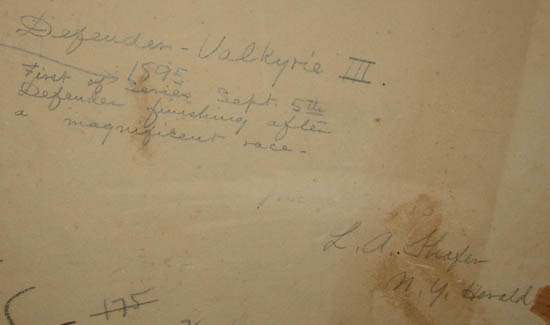 Defender - Valkyrie III.
1895
First of Series Sept. 5th
Defender finishing after
a magnificent race -
L. A. Shafer
N. Y. Herald
175